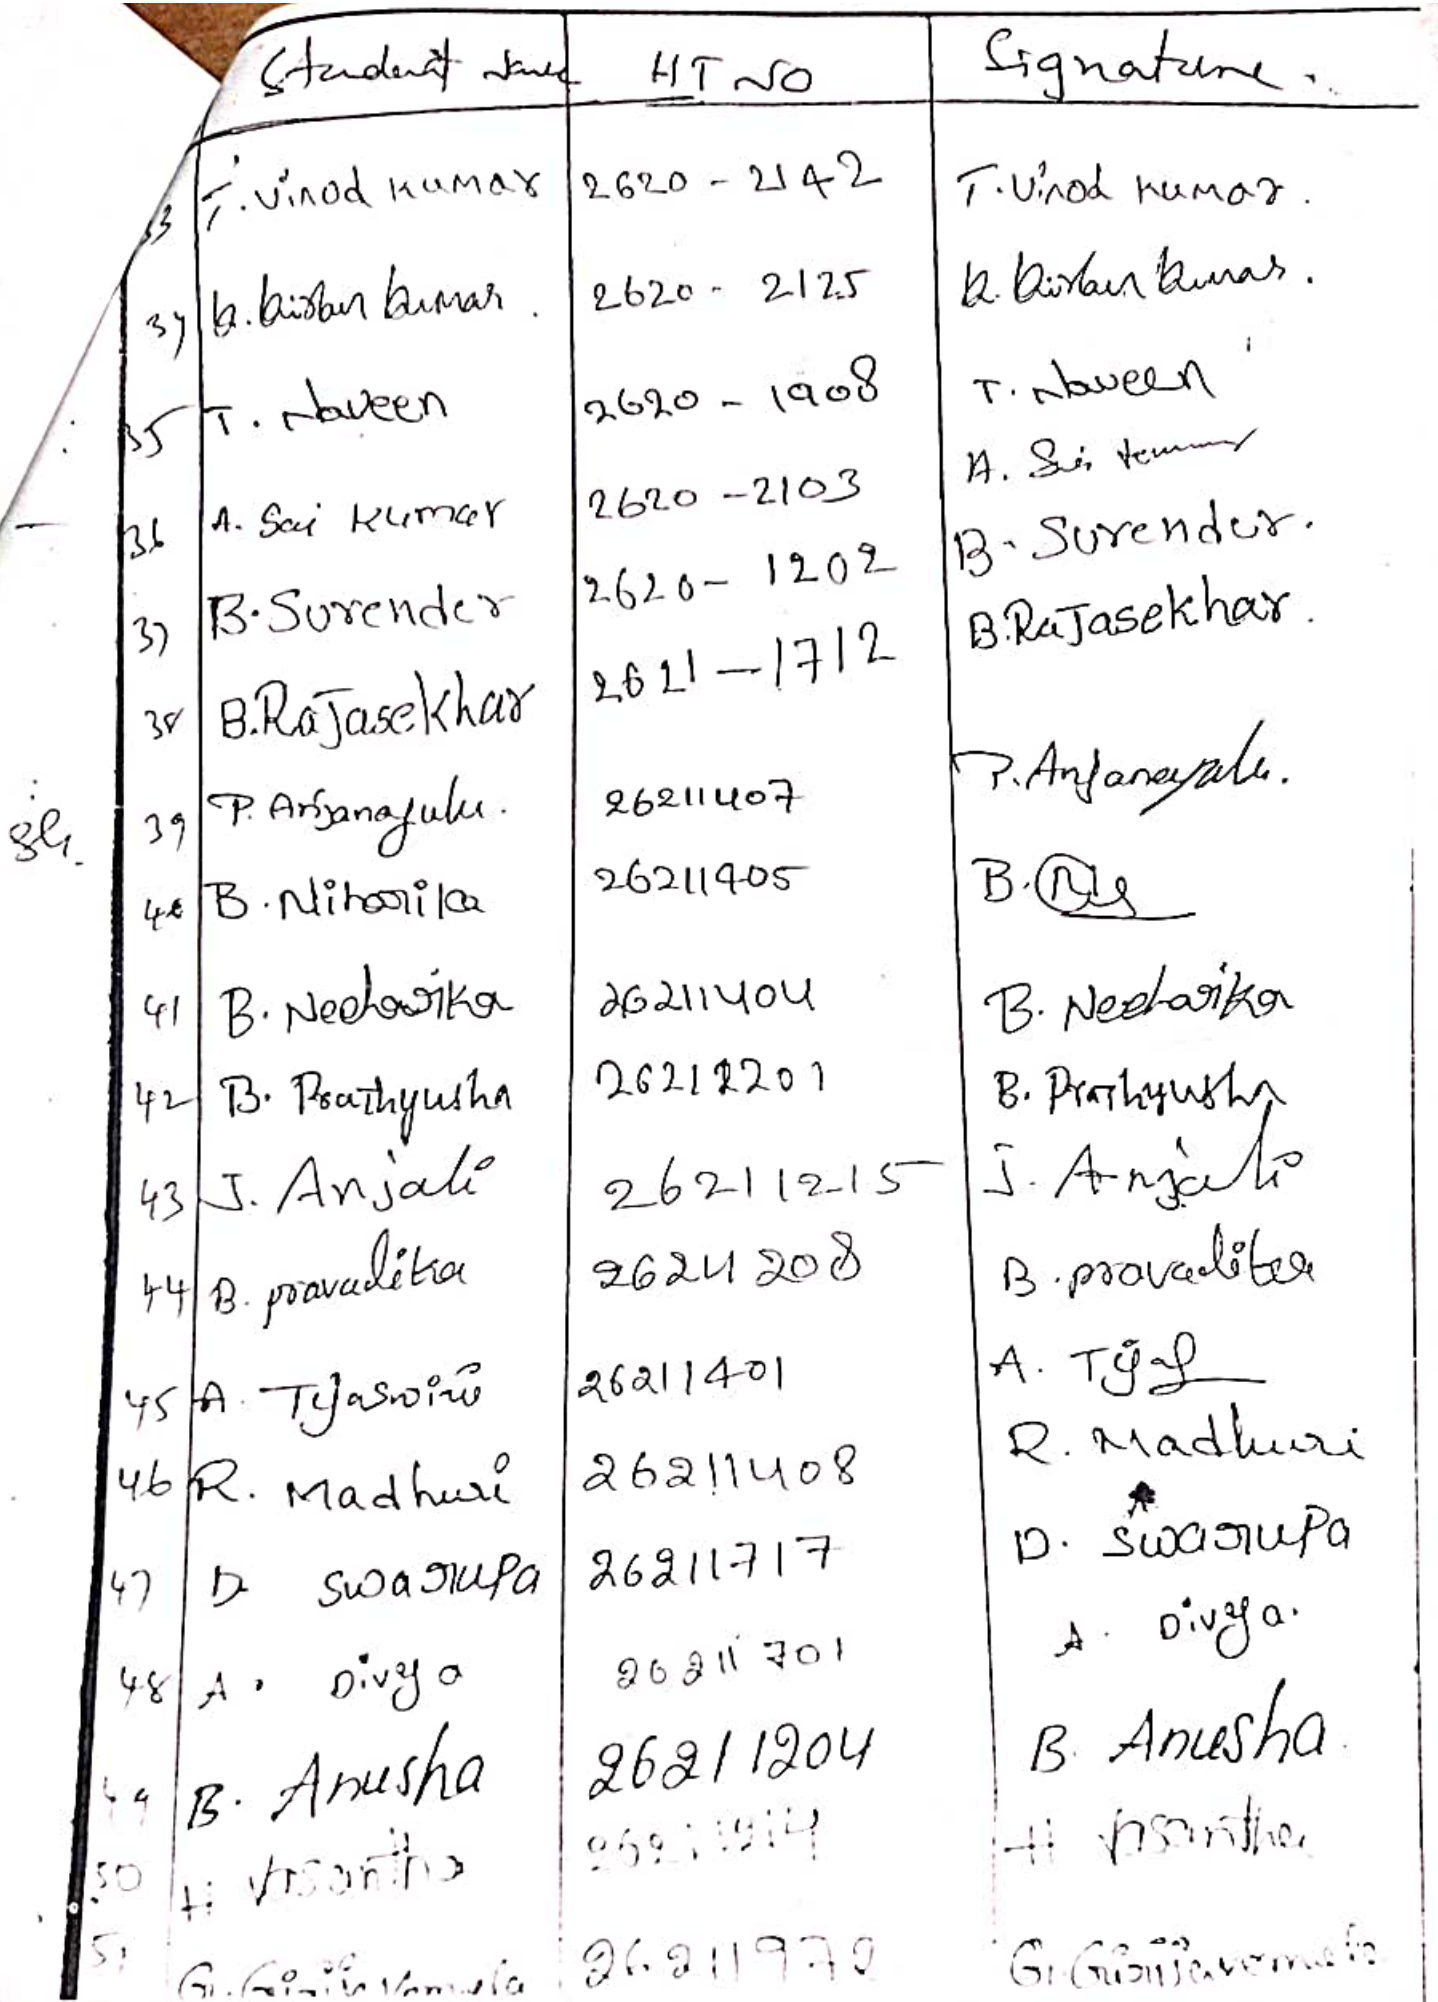 Student Name HT NO Signature.
33 T. Vinod Kumar 2620 - 2142 T. Vinod Kumar.
34 K. Kiran Kumar. 2620 - 2125 K. Kiran Kumar.
35 T. Naveen 2620 - 1908 T. Naveen
36 A. Sai Kumar 2620 - 2103 A. Sai
37 B. Surender 2620 - 1202 B. Surender.
38 B. RaJasekhar 2621 - 1712 B. RaJasekhar.
39 P. Anjanayulu. 26211407 P. Anjanayulu.
40 B. Niharika 26211405 B.
41 B. Neeharika 26211404 B. Neeharika
42 B. Prathyusha 26212201 B. Prathyusha
43 J. Anjali 26211215 J. Anjali
44 B. pravalika 26211208 B. pravalika
45 A. Tejaswini 26211401 A. Tej
46 R. Madhuri 26211408 R. Madhuri
47 D swarupa 26211717 D. swarupa
48 A. Divya 26211701 A. Divya.
49 B. Anusha 26211204 B. Anusha.
50 H Vasantha H Vasantha
51 G.